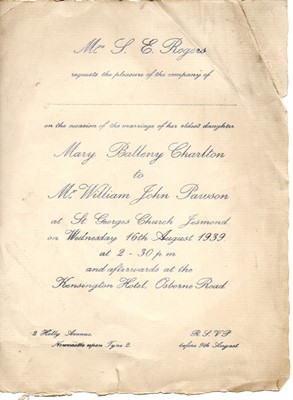 Mrs S. E. Rogers
requests the pleasure of the company of
on the occasion of the marriage of her eldest daughter
Mary Balleny Charlton
to
Mr William John Pawson
at St Georges Church Jesmond
on Wednesday 16th August 1939
at 2-30 p m
and afterwards at the
Kensington Hotel, Osborne Road
2 Holly Avenue
Newcastle upon Tyne 2.
R.S.V.P
before 9th August